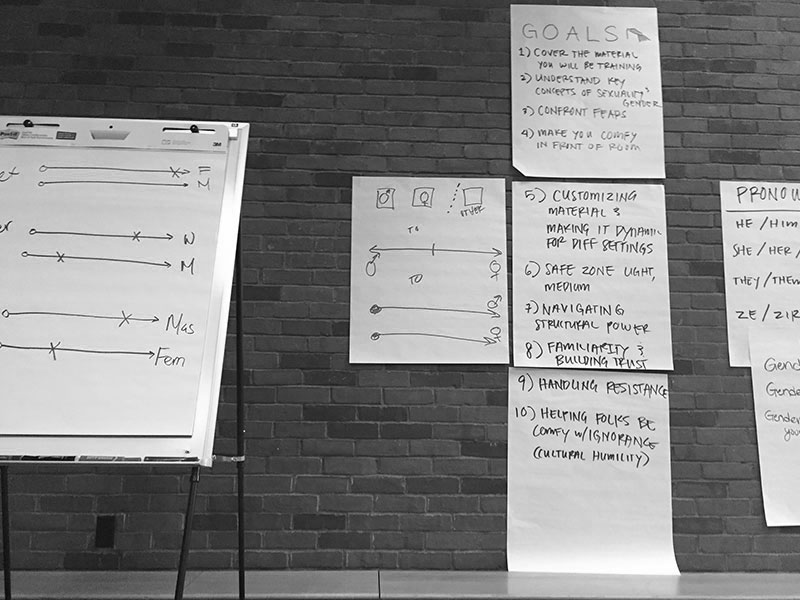 F
M
W
M
Mas
Fem
3M
OTHER
TO
TO
GOALS
1) COVER THE MATERIAL
YOU WILL BE TRAINING
2) UNDERSTAND KEY
CONCEPTS OF SEXUALITY &
GENDER
3) CONFRONT FEARS
4) MAKE YOU COMFY
IN FRONT OF ROOM
5) CUSTOMIZING
MATERIAL &
MAKING IT DYNAMIC
FOR DIFF SETTINGS
6) SAFE ZONE LIGHT,
MEDIUM
7) NAVIGATING
STRUCTURAL POWER
8) FAMILIARITY &
BUILDING TRUST
9) HANDLING RESISTANCE
10) HELPING FOLKS BE
COMFY W/IGNORANCE
(CULTURAL HUMILITY)
PRONOU
HE / HIM
SHE / HER /
THEY / THEM
ZE / ZIR
Gend
Gende
Gender
you